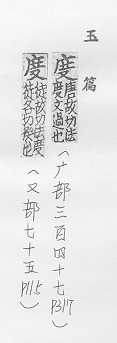 玉篇
度唐故切法度又過也(广部三百四十七P317)
度徒故切法度徒各切揆也(又部七十五P115)